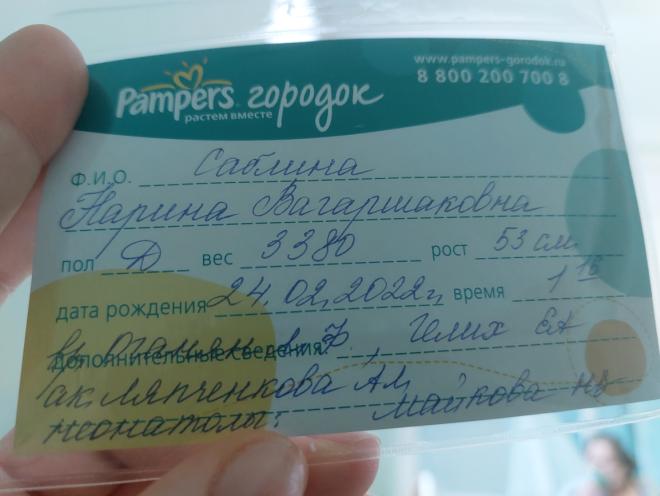 www.pampers-gorodok.ru
8 800 200 700 8
Pampers городок
растем вместе
Ф.И.О. Саблина
Нарина Вагаршаковна
пол Д вес 3380 рост 53 см
дата рождения 24.02.2022г. время 1 16
дополнительные сведения: Гелих ЕА
ак. Ляпченкова А.И,
неонатолог: Майкова НВ